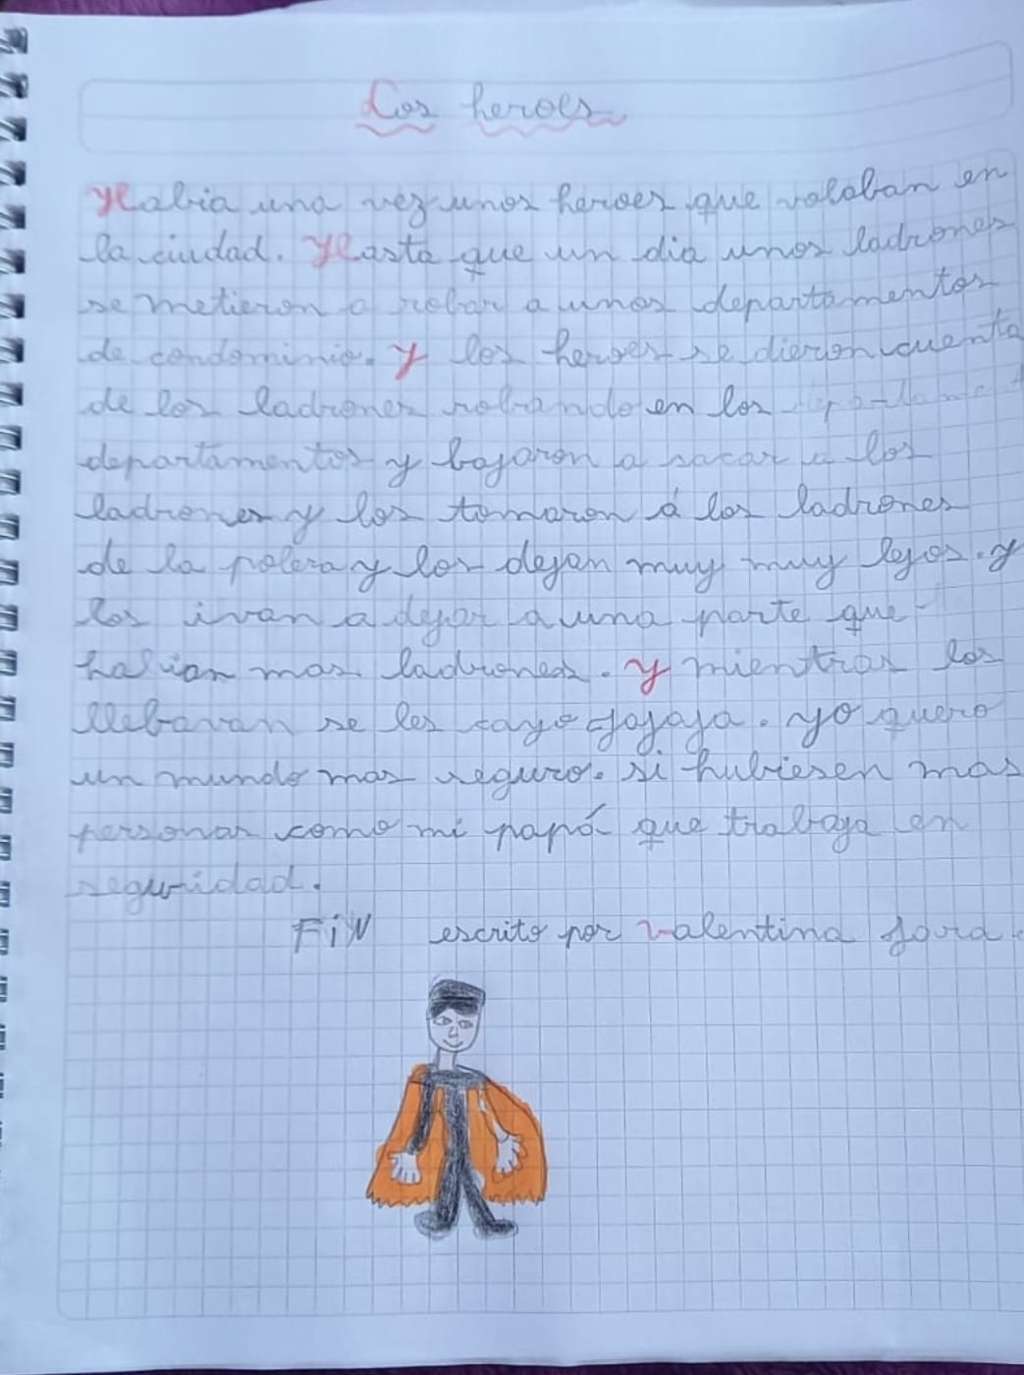 Los heroes
Habia una vez unos heroes que volaban en
la ciudad. Hasta que un dia unos ladrones
se metieron a robar a unos departamentos
de condominio. Y los heroes se dieron cuenta
de los ladrones robando en los
departamentos y bajaron a sacar a los
ladrones y los tomaron á los ladrones
de la polera y los dejan muy muy lejos. y
los ivan a dejar a una parte que
habian mas ladrones. y mientras los
llebavan se les cayo jajaja. yo quero
un mundo mas seguro. si hubiesen mas
personas como mi papá que trabaja en
seguridad.
FiN escrito por Valentina